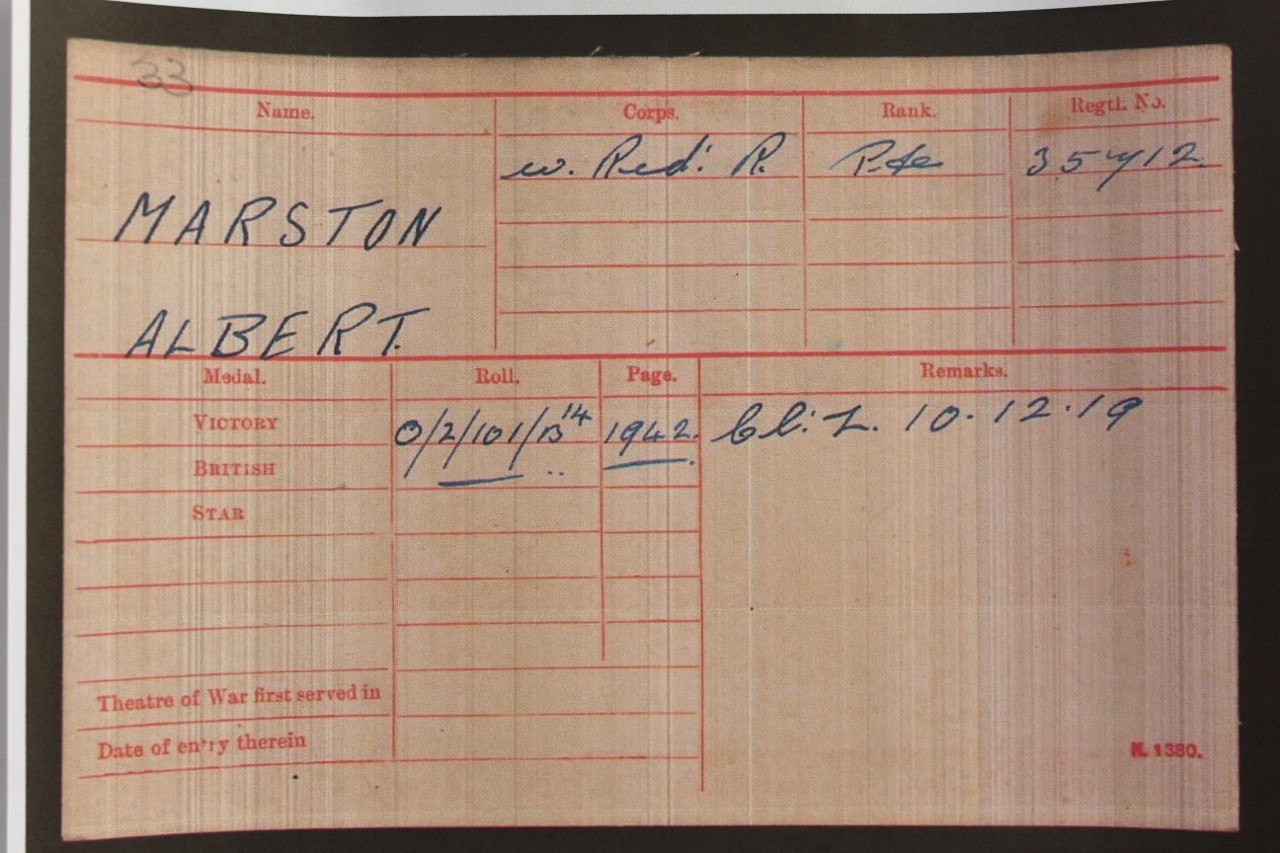 33
Name. Corps. Rank. Regtl. No.
W. Rid: R. Pte 35712.
MARSTON
ALBERT.
Medal. Roll. Page. Remarks.
VICTORY O/2/101/B14 1942. Cl: Z. 10.12.19
BRITISH ——— „ ———
STAR
Theatre of War first served in
Date of entry therein
K. 1380.